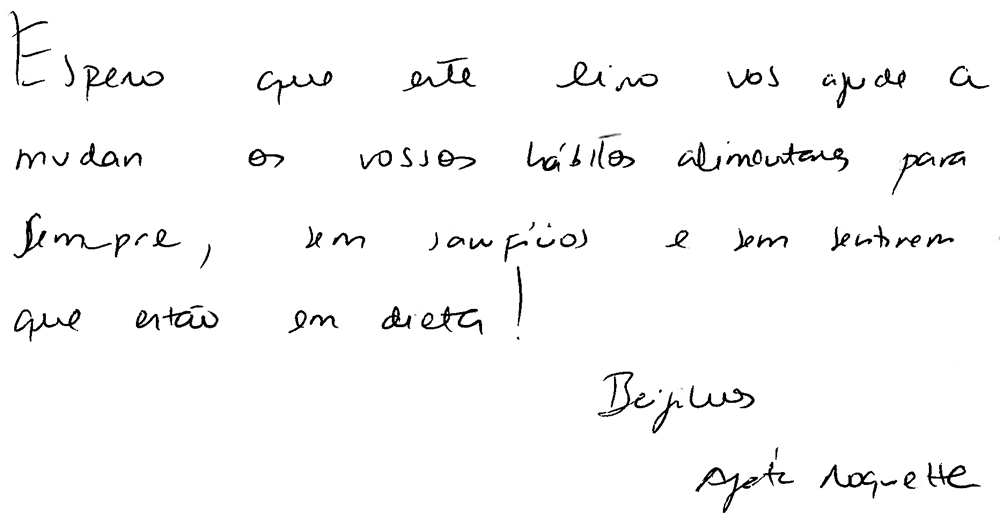 Espero que este livro vos ajude a
mudar os vossos hábitos alimentares para
sempre, sem sacrifícios e sem sentirem
que estão em dieta!
Beijinhos
Ágata Roquette